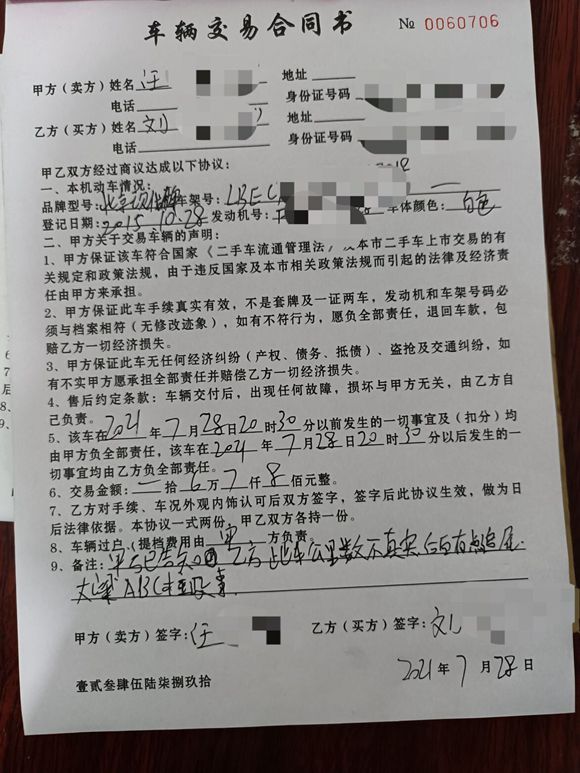 车辆交易合同书 № 0060706
甲方（卖方）姓名 任 地址
电话 身份证号码
乙方（买方）姓名 刘 地址
电话 身份证号码
甲乙双方经过商议达成以下协议：
一、本机动车情况：
品牌型号：北京现代牌 车架号：LBEC
登记日期：2015.10.28 发动机号： 车体颜色：白色
二、甲方关于交易车辆的声明：
1、甲方保证该车符合国家《二手车流通管理法》及本市二手车上市交易的有
关规定和政策法规，由于违反国家及本市相关政策法规而引起的法律及经济责
任由甲方来承担。
2、甲方保证此车手续真实有效，不是套牌及一证两车，发动机和车架号码必
须与档案相符（无修改迹象），如有不符行为，愿负全部责任，退回车款，包
赔乙方一切经济损失。
3、甲方保证此车无任何经济纠纷（产权、债务、抵债）、盗抢及交通纠纷，如
有不实甲方愿承担全部责任并赔偿乙方一切经济损失。
4、售后约定条款：车辆交付后，出现任何故障，损坏与甲方无关，由乙方自
己负责。
5、该车在2021年7月28日20时30分以前发生的一切事宜及（扣分）均
由甲方负全部责任，该车在2021年7月28日20时30分以后发生的一
切事宜均由乙方负全部责任。
6、交易金额：一拾6万7仟8佰元整。
7、乙方对手续、车况外观内饰认可后双方签字，签字后此协议生效，做为日
后法律依据。本协议一式两份，甲乙双方各持一份。
8、车辆过户（提档费用由 方负责。
9、备注： 方已告知 乙方 此车公里数不真实 后有点追尾
ABC柱
甲方（卖方）签字：任 乙方（买方）签字：刘
2021年7月28日
壹贰叁肆伍陆柒捌玖拾